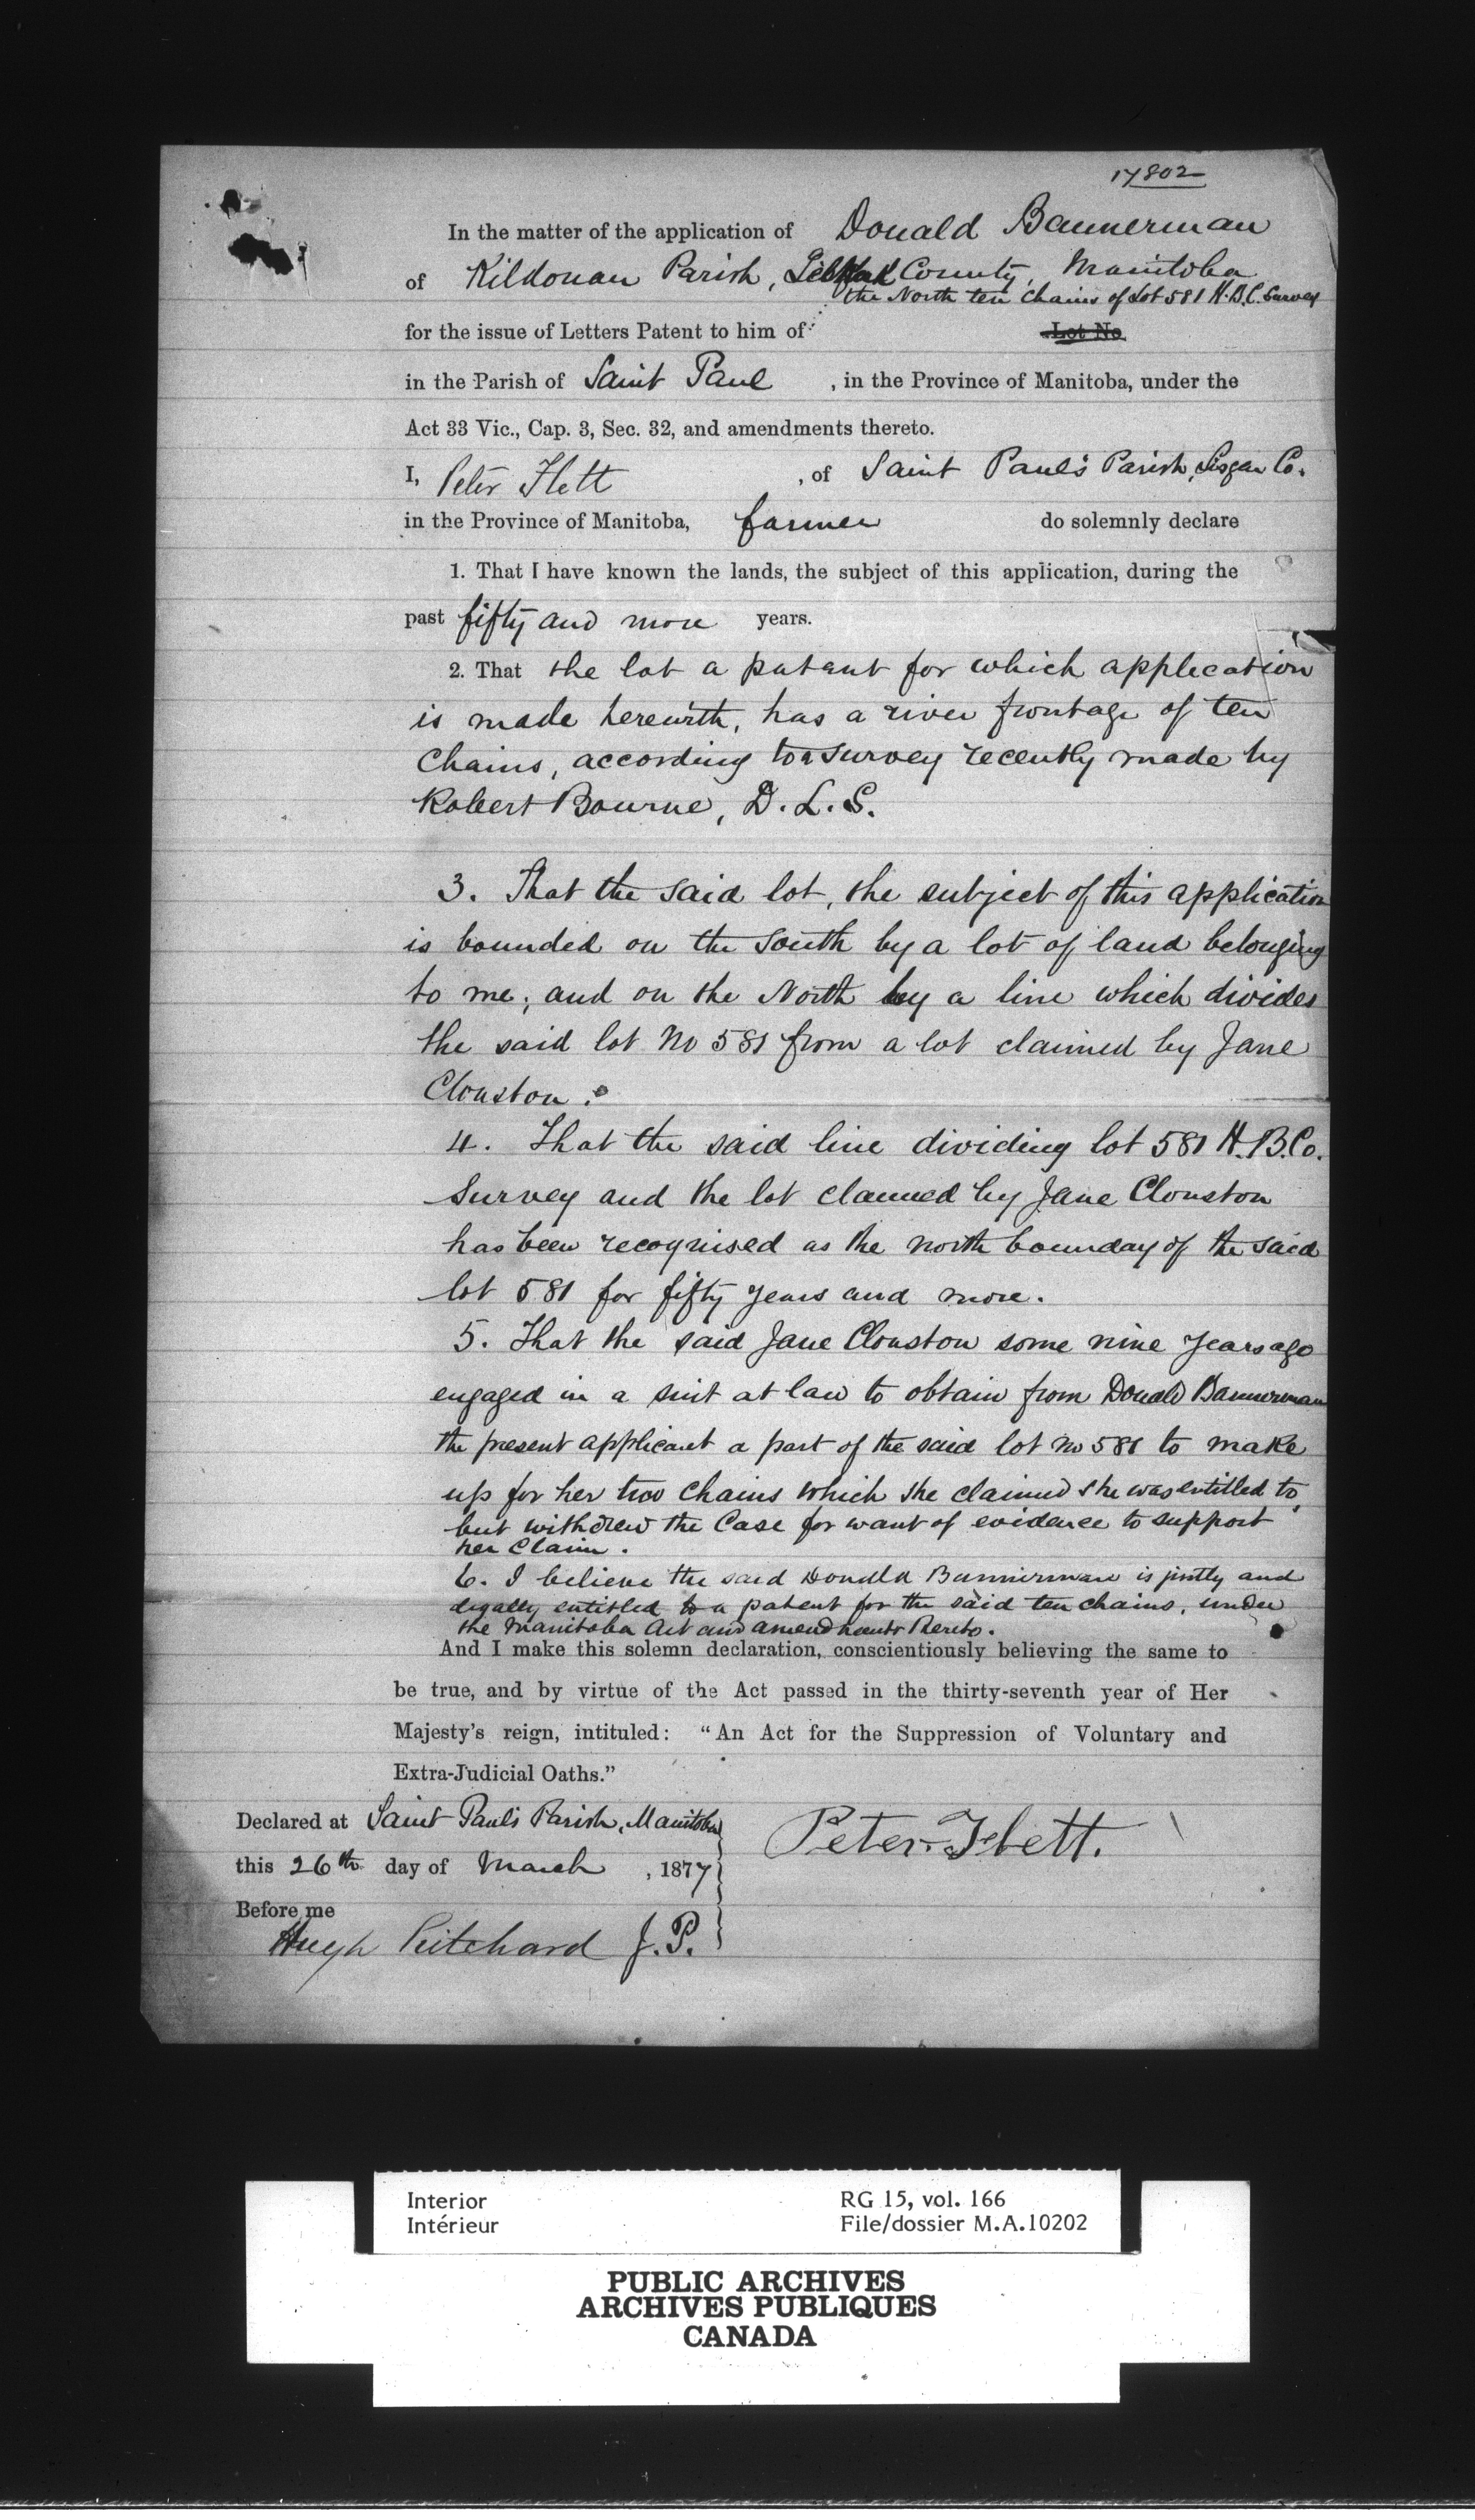 17802
In the matter of the application of Donald Bannerman
of Kildonan Parish, County, Manitoba
the North ten chains of Lot 581 H.B.C. Survey
for the issue of Letters Patent to him of Lot No.
in the Parish of Saint Paul , in the Province of Manitoba, under the
Act 33 Vic., Cap. 3, Sec. 32, and amendments thereto.
I, Peter Flett , of Saint Paul's Parish, Lisgar Co.
in the Province of Manitoba, farmer do solemnly declare
1. That I have known the lands, the subject of this application, during the
past fifty and more years.
2. That the lot a patent for which application
is made herewith, has a river frontage of ten
Chains, according to a survey recently made by
Robert Bourne, D.L.S.
3. That the said lot, the subject of this application
is bounded on the South by a lot of land belonging
to me; and on the North by a line which divides
the said lot No 581 from a lot claimed by Jane
Clouston.
4. That the said line dividing lot 581 H.B.Co.
Survey and the lot claimed by Jane Clouston
has been recognised as the north bounday of the said
lot 581 for fifty years and more.
5. That the said Jane Clouston some nine years ago
engaged in a suit at law to obtain from Donald Bannerman
the present applicant a part of the said lot No 581 to make
up for her two chains which she claimed she was entitled to,
but withdrew the Case for want of evidence to support
her Claim.
6. I believe the said Donald Bannerman is justly and
legally entitled to a patent for the said ten chains, under
the Manitoba Act and amendments thereto.
And I make this solemn declaration, conscientiously believing the same to
be true, and by virtue of the Act passed in the thirty-seventh year of Her
Majesty's reign, intituled: "An Act for the Suppression of Voluntary and
Extra-Judicial Oaths."
Declared at Saint Paul's Parish, Manitoba
this 26th day of March , 1877
Peter Flett.
Before me
Hugh Pritchard J.P.
Interior
Intérieur
RG 15, vol. 166
File/dossier M.A.10202
PUBLIC ARCHIVES
ARCHIVES PUBLIQUES
CANADA